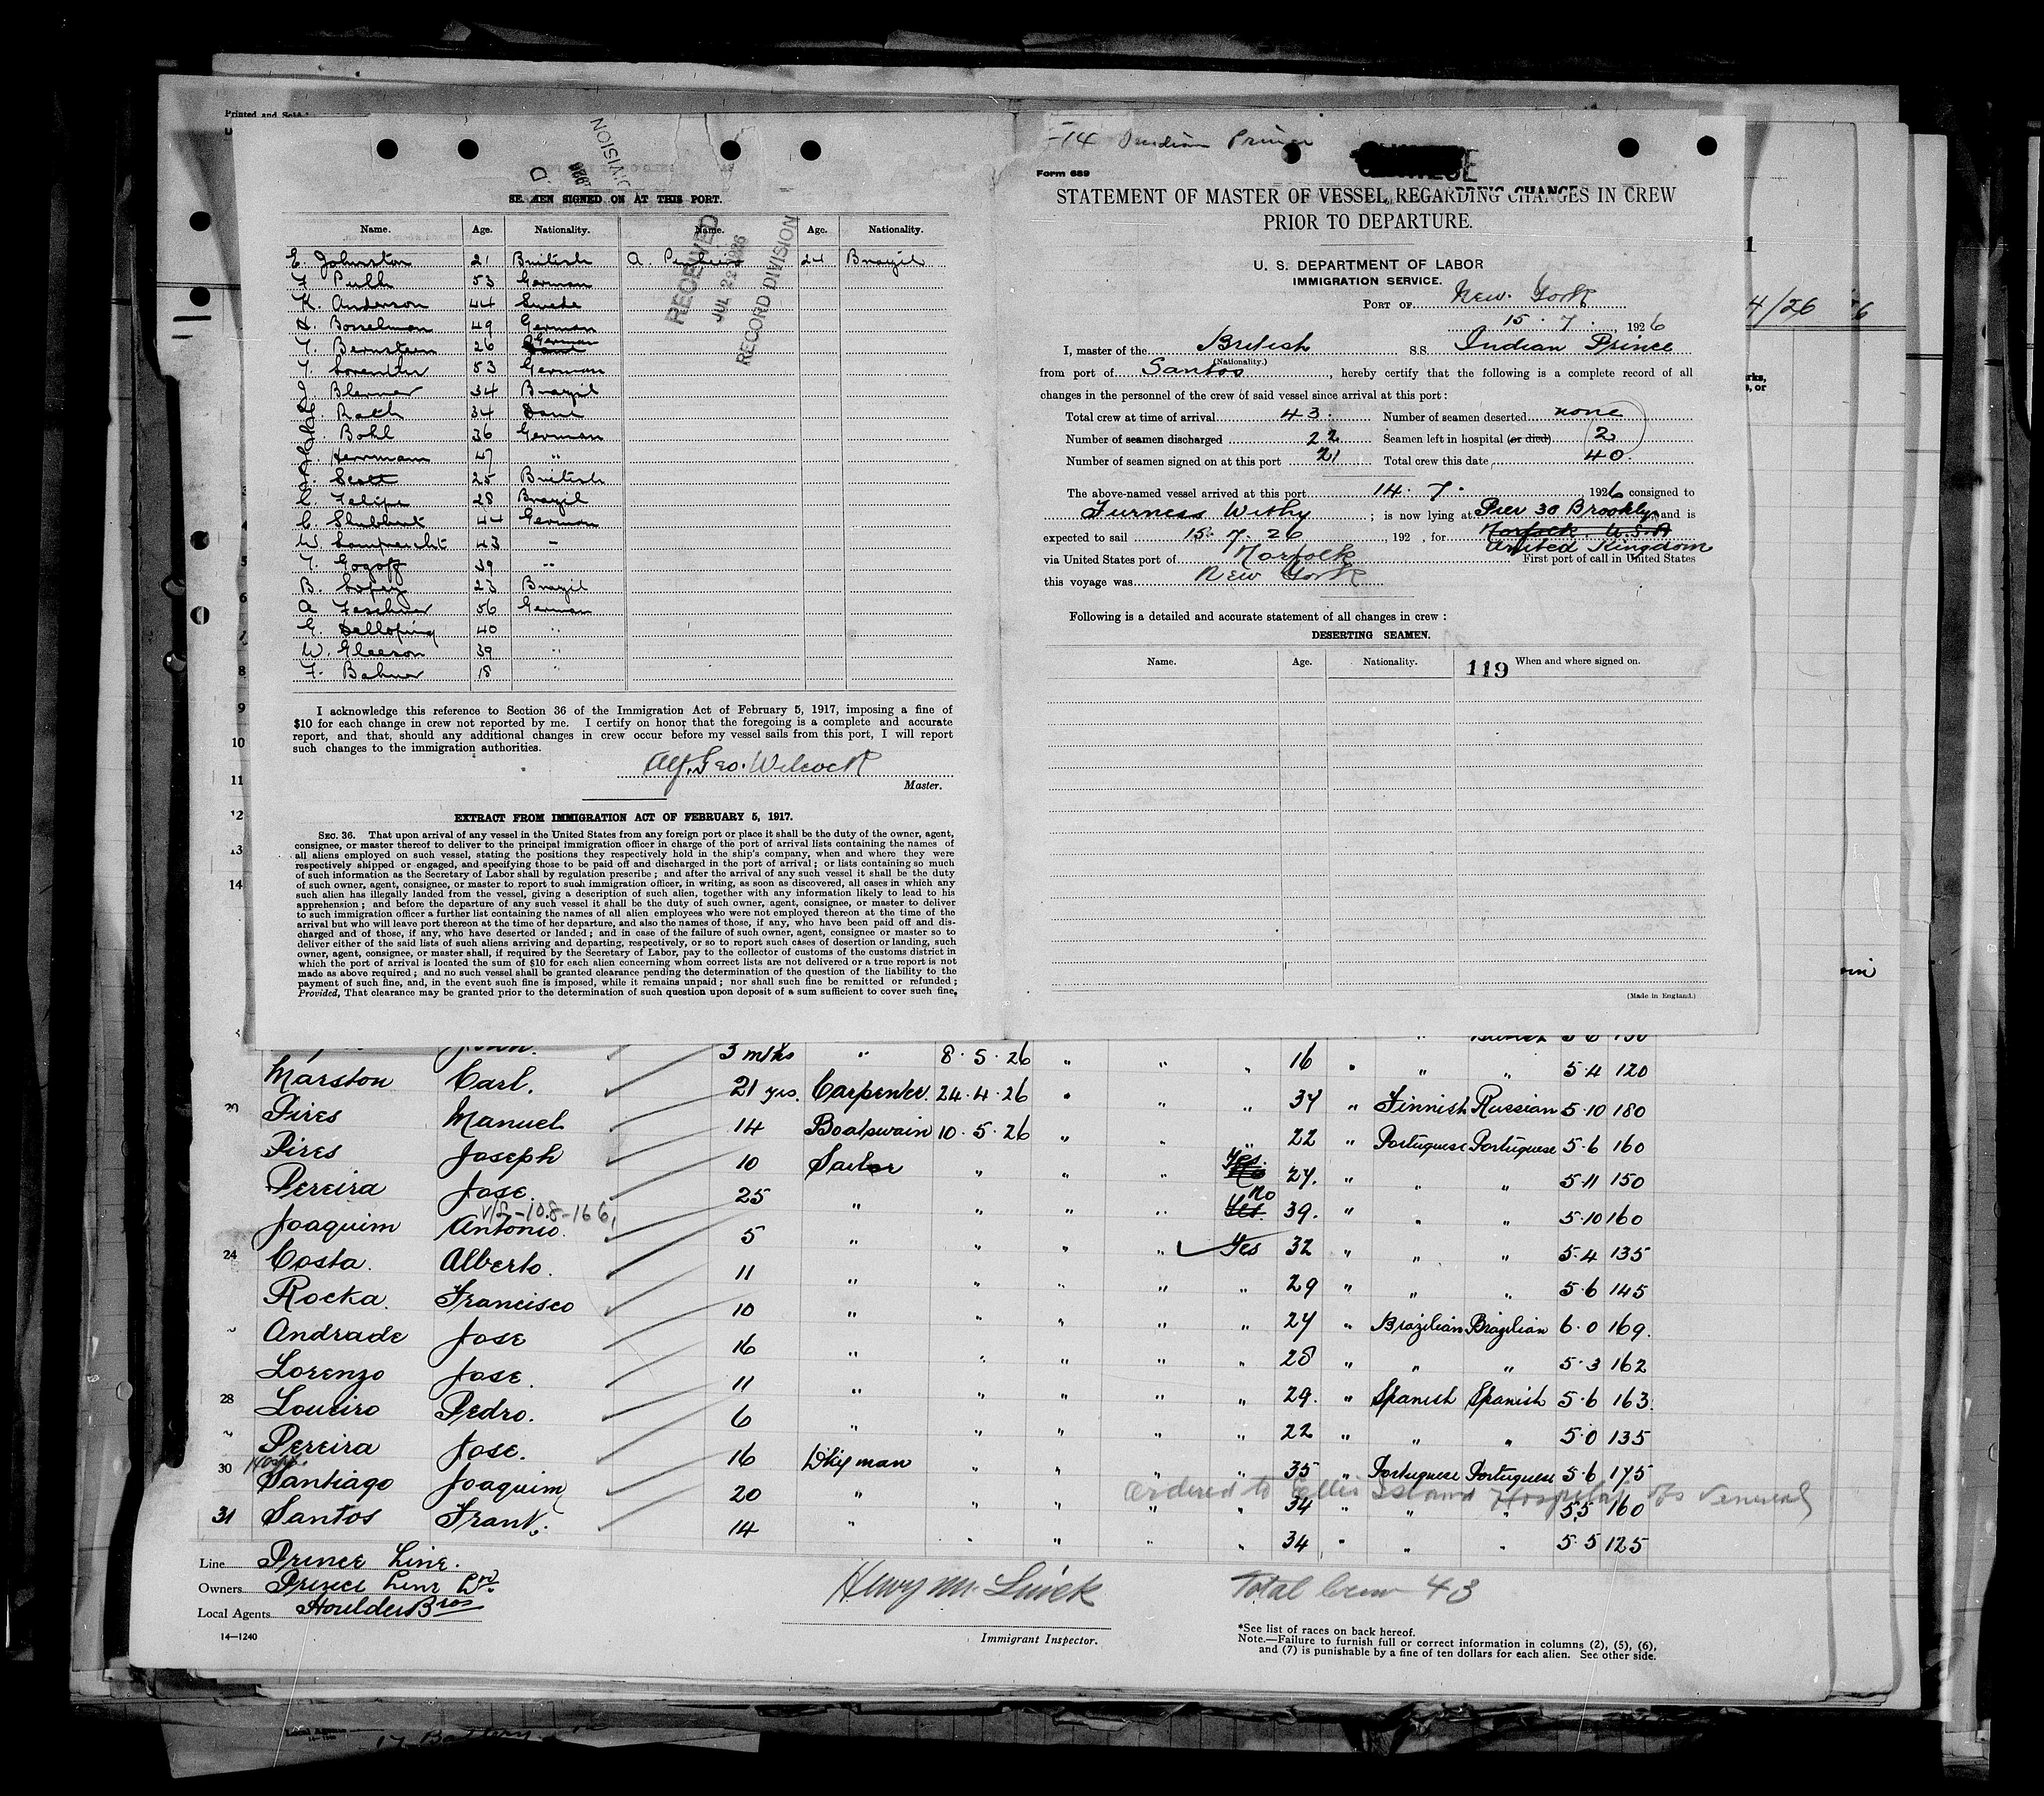 Printed and Sold
SEAMEN SIGNED ON AT THIS PORT.
RECEIVED
JUL 22 1926
RECORD DIVISION
Name. Age. Nationality. Name. Age. Nationality.
E. Johnston 21 British A. 24 Brazil
53 German
K. Anderson 44 Swede
H. Bosselman 49 German
Bernstein 26 German
53 German
J. 34 Brazil
Rath 34 Dane
Bohl 36 German
Herrmann 47 "
J. Scott 25 British
C. Felipe 28 Brazil
C. 44 German
W. Lamprecht 43 -
Gogoff 39 "
B. Lopez 23 Brazil
A 56 German
E. 40 "
W. Gleeson 39 "
18 "
I acknowledge this reference to Section 36 of the Immigration Act of February 5, 1917, imposing a fine of
$10 for each change in crew not reported by me. I certify on honor that the foregoing is a complete and accurate
report, and that, should any additional changes in crew occur before my vessel sails from this port, I will report
such changes to the immigration authorities.
Alf. Geo. Wilcock
Master.
EXTRACT FROM IMMIGRATION ACT OF FEBRUARY 5, 1917.
SEC. 36. That upon arrival of any vessel in the United States from any foreign port or place it shall be the duty of the owner, agent,
consignee, or master thereof to deliver to the principal immigration officer in charge of the port of arrival lists containing the names of
all aliens employed on such vessel, stating the positions they respectively hold in the ship's company, when and where they were
respectively shipped or engaged, and specifying those to be paid off and discharged in the port of arrival; or lists containing so much
of such information as the Secretary of Labor shall by regulation prescribe; and after the arrival of any such vessel it shall be the duty
of such owner, agent, consignee, or master to report to such immigration officer, in writing, as soon as discovered, all cases in which any
such alien has illegally landed from the vessel, giving a description of such alien, together with any information likely to lead to his
apprehension; and before the departure of any such vessel it shall be the duty of such owner, agent, consignee, or master to deliver
to such immigration officer a further list containing the names of all alien employees who were not employed thereon at the time of the
arrival but who will leave port thereon at the time of her departure, and also the names of those, if any, who have been paid off and dis-
charged and of those, if any, who have deserted or landed; and in case of the failure of such owner, agent, consignee or master so to
deliver either of the said lists of such aliens arriving and departing, respectively, or so to report such cases of desertion or landing, such
owner, agent, consignee, or master shall, if required by the Secretary of Labor, pay to the collector of customs of the customs district in
which the port of arrival is located the sum of $10 for each alien concerning whom correct lists are not delivered or a true report is not
made as above required; and no such vessel shall be granted clearance pending the determination of the question of the liability to the
payment of such fine, and, in the event such fine is imposed, while it remains unpaid; nor shall such fine be remitted or refunded;
Provided, That clearance may be granted prior to the determination of such question upon deposit of a sum sufficient to cover such fine.
-14 Indian Prince
Form 689
STATEMENT OF MASTER OF VESSEL REGARDING CHANGES IN CREW
PRIOR TO DEPARTURE.
U. S. DEPARTMENT OF LABOR
IMMIGRATION SERVICE.
PORT OF New York
15. 7. 1926
I, master of the British S.S. Indian Prince
(Nationality.)
from port of Santos, hereby certify that the following is a complete record of all
changes in the personnel of the crew of said vessel since arrival at this port:
Total crew at time of arrival 43. Number of seamen deserted none
Number of seamen discharged 22 Seamen left in hospital (or died) 2
Number of seamen signed on at this port 21 Total crew this date 40.
The above-named vessel arrived at this port 14. 7. 1926 consigned to
Furness Withy; is now lying at Pier 30 Brooklyn and is
expected to sail 15. 7. 26, 192 , for Norfolk U.S.A
United Kingdom
via United States port of Norfolk First port of call in United States
this voyage was New York
Following is a detailed and accurate statement of all changes in crew:
DESERTING SEAMEN.
Name. Age. Nationality. When and where signed on.
119
(Made in England.)
4/26
John. 3 mths " 8.5.26 " " " 16 " " " 5.4 120
Marston Carl. 21 yrs. Carpenter. 24.4.26 " " " 37 " Finnish Russian 5.10 180
20 Pires Manuel 14 Boatswain 10.5.26 " " " 22 " Portuguese Portuguese 5.6 160
Pires Joseph 10 Sailor " " " Yes. No 27. " " " 5.11 150
Pereira Jose. 25 " " " " No Yes. 39. " " " 5.10 160
V/L-108-166,
Joaquim Antonio. 5 " " " " Yes 32 " " " 5.4 135
24 Costa. Alberto. 11 " " " " " 29 " " " 5.6 145
Rocka. Francisco 10 " " " " " 27 " Brazilian Brazilian 6.0 169.
Andrade Jose 16 " " " " " 28 " " " 5.3 162
Lorenzo Jose. 11 " " " " " 29. " Spanish Spanish 5.6 163.
28 Loueiro Pedro. 6 " " " " " 22 " " " 5.0 135
Pereira Jose. 16 Dkyman " " " " 35 " Portuguese Portuguese 5.6 175
Hosp. ordered to Ellis Island Hospital as Venereal
30 Santiago Joaquim 20 " " " " " 34 " " " 5.5 160
31 Santos Frank. 14 " " " " " 34 " " " 5.5 125
Line Prince Line.
Owners Prince Line Ltd
Local Agents Houlder Bros
14—1240
Immigrant Inspector.
Total Crew 43
*See list of races on back hereof.
Note.—Failure to furnish full or correct information in columns (2), (5), (6),
and (7) is punishable by a fine of ten dollars for each alien. See other side.
17 Battery